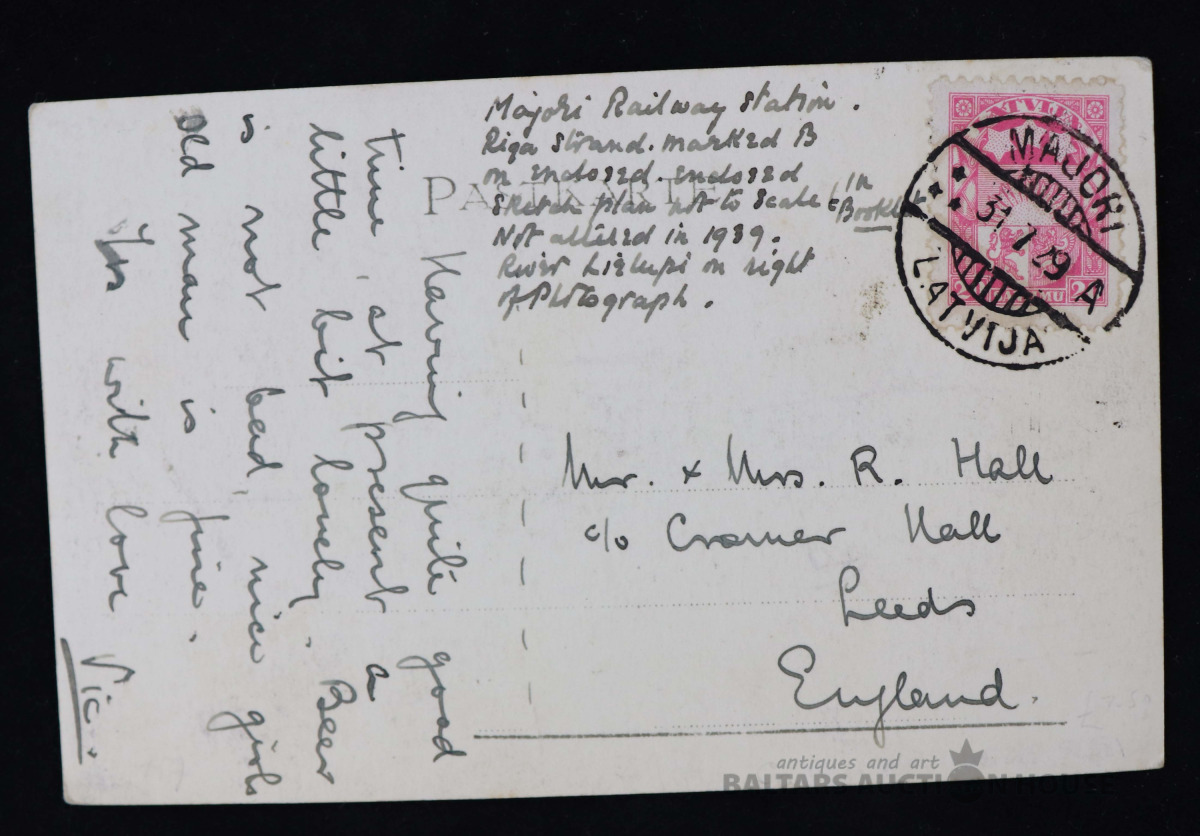 Majori Railway Station.
Riga Strand. marked B
on enclosed. enclosed
Sketch plan not to Scale (in
Booklet
Not altered in 1939.
River Lielupi on right
of Photograph.
PASTKARTE
LATVIJA
MAJORI
31 7 29
A
LATVIJA
Having quite good
time, at present a
little bit lonely. Beer
is not bad, nice girls
old man is fine.
with love
Vic.
Mr. + Mrs. R. Hall
c/o Cromer Hall
Leeds
England.
antiques and art
BALTARS AUCTION HOUSE